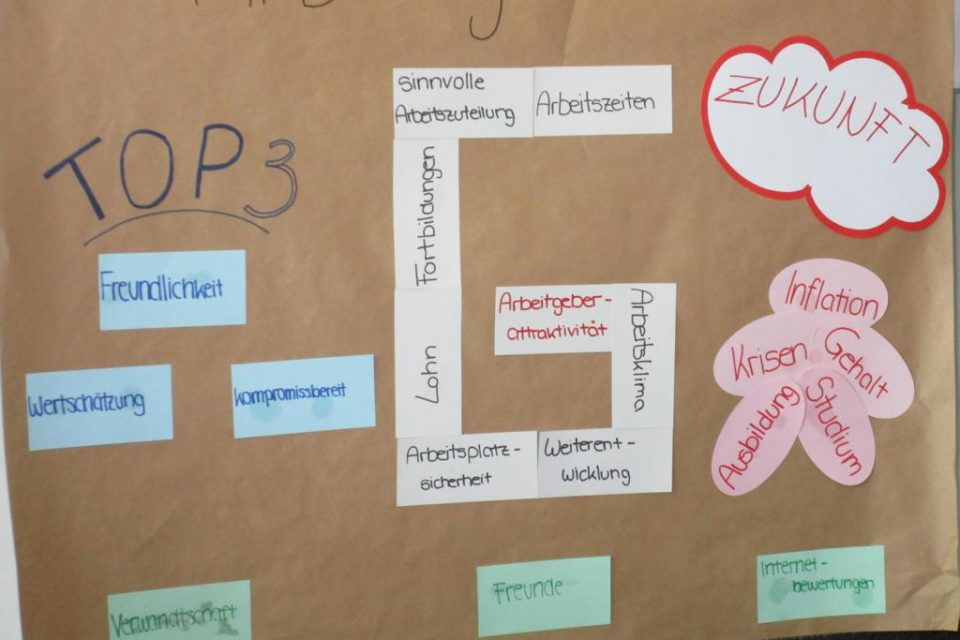 TOP 3
Freundlichkeit
Wertschätzung
kompromissbereit
sinnvolle
Arbeitszuteilung
Arbeitszeiten
Fortbildungen
Lohn
Arbeitgeber-
attraktivität
Arbeitsklima
Arbeitsplatz-
sicherheit
Weiterent-
wicklung
ZUKUNFT
Inflation
Krisen
Gehalt
Ausbildung
Studium
Verwandtschaft
Freunde
Internet-
bewertungen